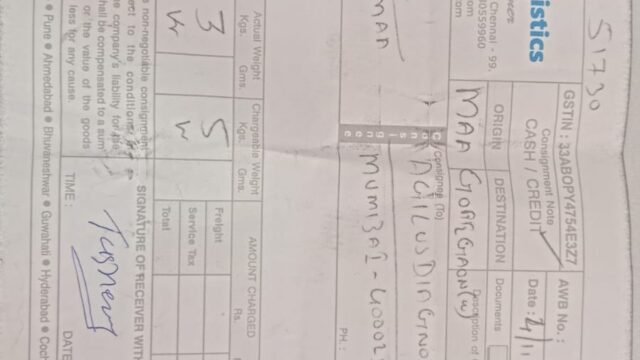 51730
istics
Chennai - 99.
90559960
GSTIN : 33ABOPY4754E3Z7
Consignment Note
CASH / CREDIT
AWB No. :
Date : 4/11
ORIGIN
DESTINATION
Documents
MAA
GOREGAON(W)
Description of
Consignee (To)
MUMBAI - 40002
PH. :
Actual Weight
Kgs.
Gms.
3
Chargeable Weight
Kgs.
Gms.
5
AMOUNT CHARGED
Rs.
Freight
Service Tax
Total
s non-negotiable consignment
ect to the conditions
he company's liability for
hall be compensated to a sum
or the value of the goods
less for any cause.
SIGNATURE OF RECEIVER WITH
TIME :
DATE
● Pune ● Ahmedabad ● Bhuvaneshwar ● Guwahati ● Hyderabad ● Coch